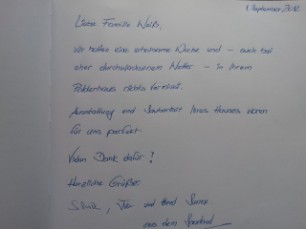 1. September 2018
Liebe Familie Weiß,
wir hatten eine erholsame Woche und – auch bei
eher durchwachsenem Wetter – in Ihrem
nichts vermißt.
Ausstattung und Sauberkeit Ihres Hauses waren
für uns perfekt.
Vielen Dank dafür!
Herzliche Grüße
und
aus dem